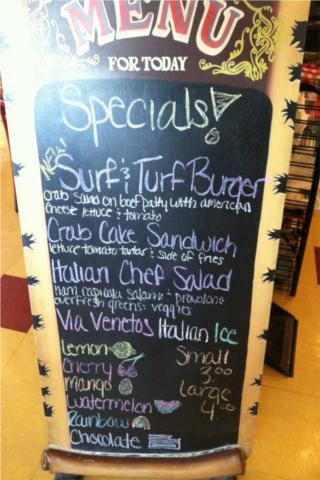 MENU
FOR TODAY
Specials!
NEW
Surf & Turf Burger
crab salad on beef patty with american
cheese lettuce & tomato
Crab Cake Sandwich
lettuce tomato tartar & side of fries
Italian Chef Salad
ham capicala salami & provolone
over fresh greens & veggies
Via Venetos Italian Ice
Lemon
Cherry
Mango
Watermelon
Rainbow
Chocolate
Small
3.00
Large
4.00